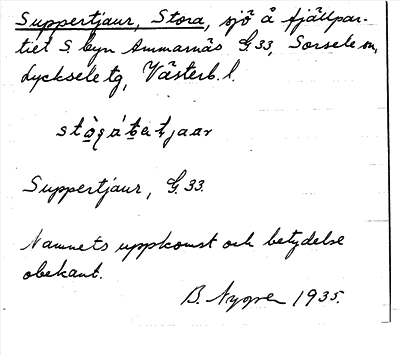 Suppertjaur, Stora, sjö å fjällpar-
tiet S. byn Ammarnäs G. 33, Sorsele sn,
Lycksele tg, Västerb. l.
Suppertjaur, G. 33.
Namnets uppkomst och betydelse
obekant.
B. 1935.